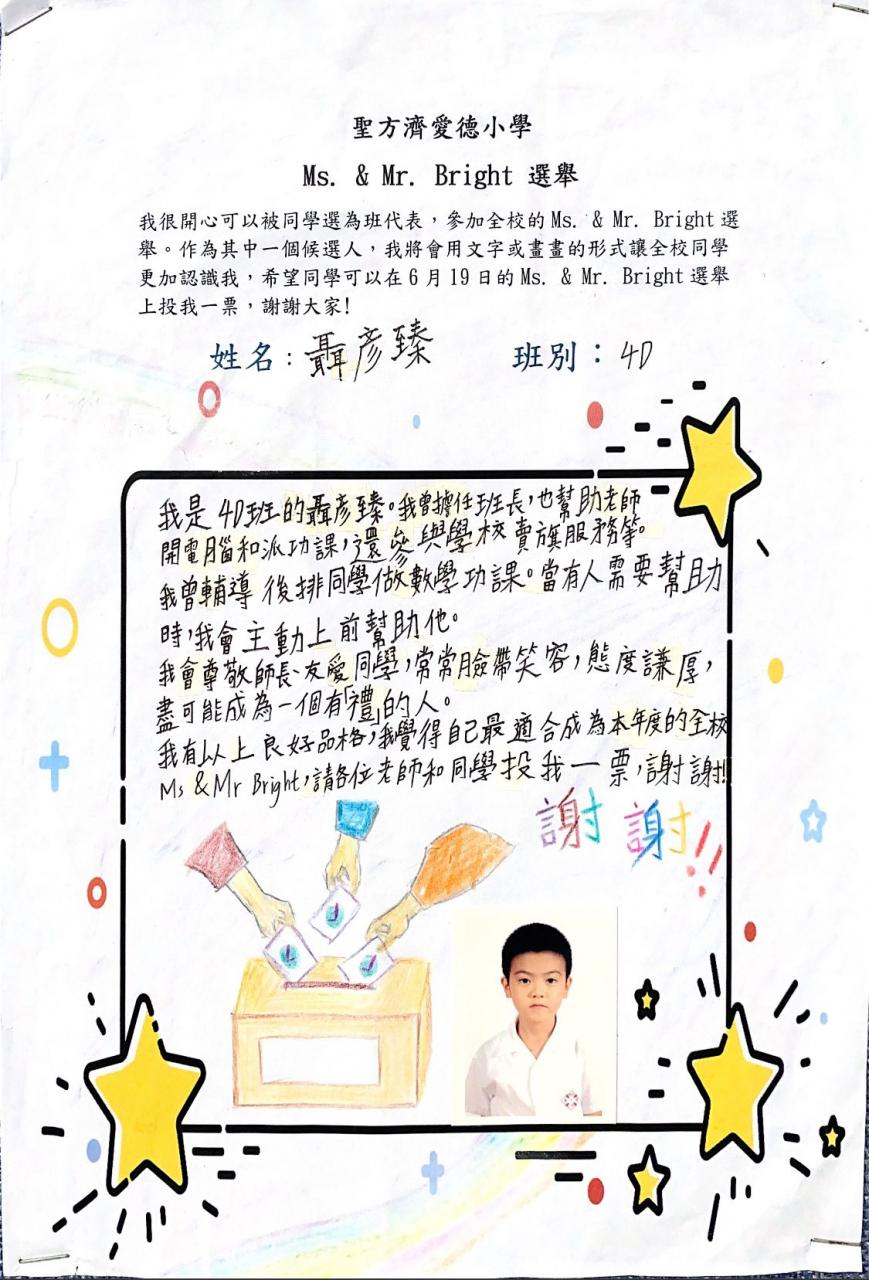 聖方濟愛德小學
Ms. & Mr. Bright 選舉
我很開心可以被同學選為班代表，參加全校的 Ms. & Mr. Bright 選
舉。作為其中一個候選人，我將會用文字或畫畫的形式讓全校同學
更加認識我，希望同學可以在 6 月 19 日的 Ms. & Mr. Bright 選舉
上投我一票，謝謝大家!
姓名：聶彥臻 班別：4D
我是 4D班的聶彥臻。我曾擔任班長，也幫助老師
開電腦和派功課，還參與學校賣旗服務等。
我曾輔導後排同學做數學功課。當有人需要幫助
時，我會主動上前幫助他。
我會尊敬師長、友愛同學，常常臉帶笑容，態度謙厚，
盡可能成為一個有「禮」的人。
我有以上良好品格，我覺得自己最適合成為本年度的全校
Ms & Mr Bright，請各位老師和同學投我一票，謝謝!!
謝謝!!